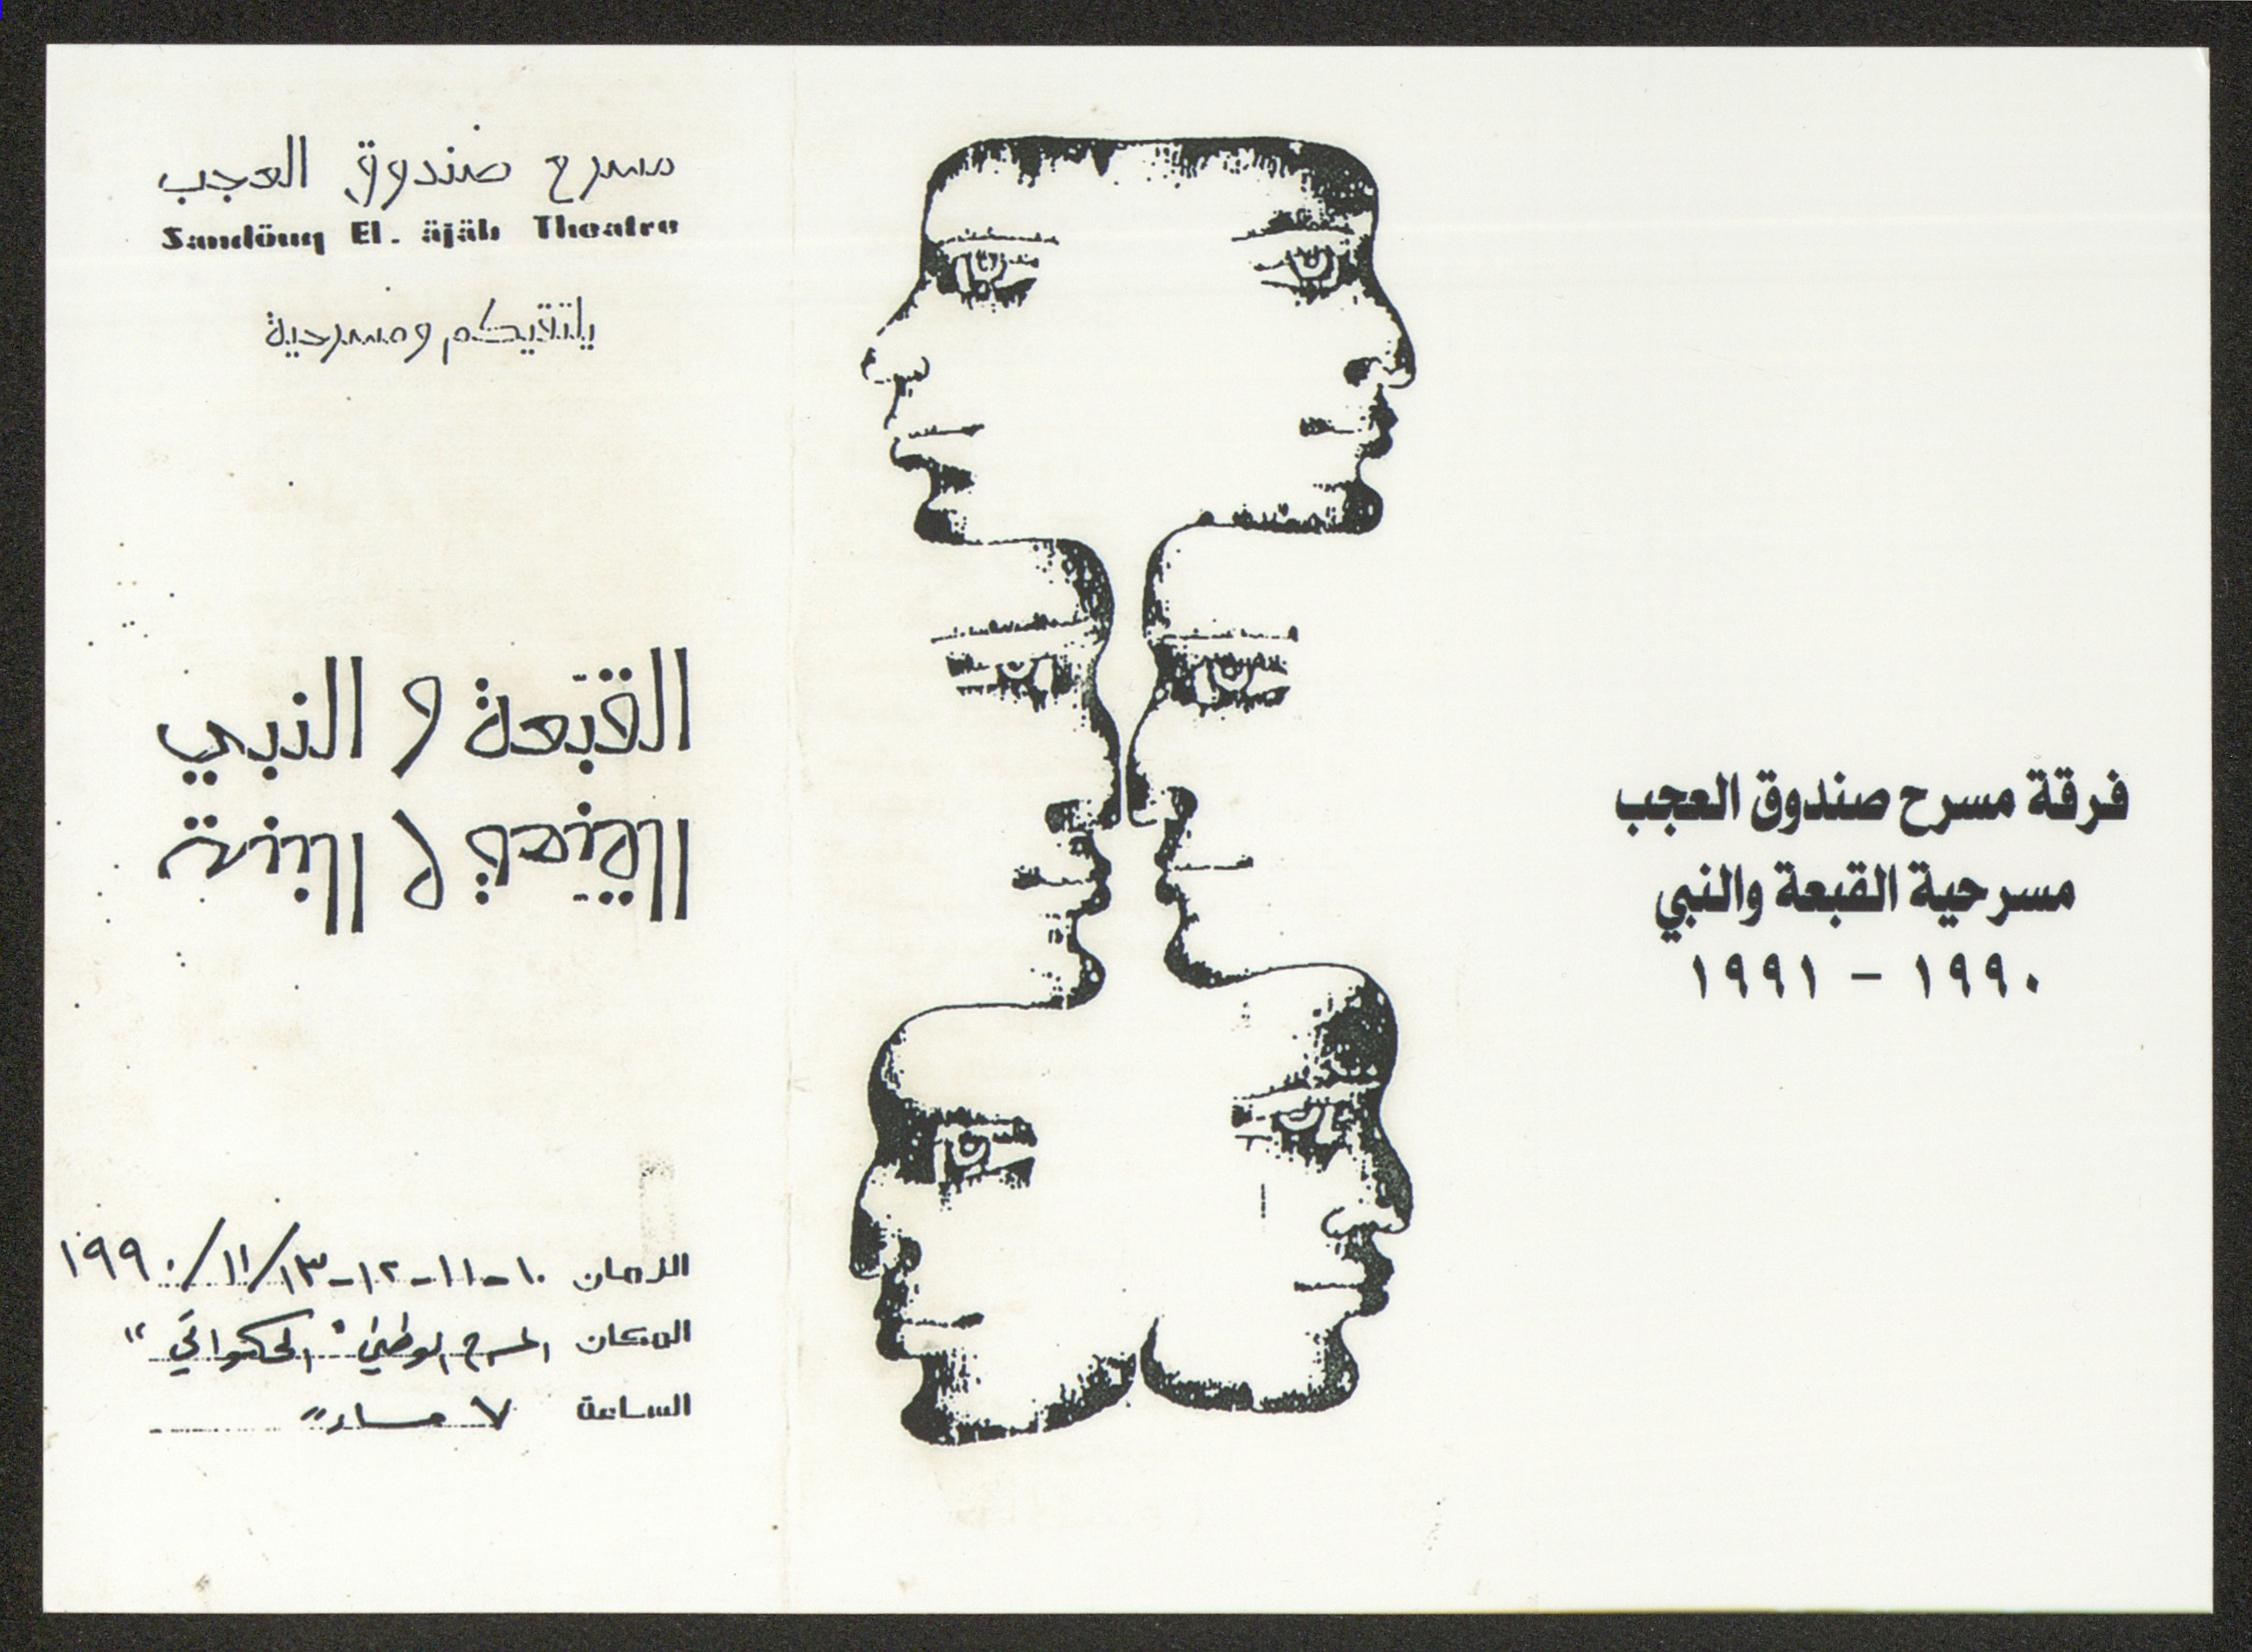 مسرح صندوق العجب
Sandöuq El. äjäb Theatre
يلتقيكم ومسرحية
القبّعة و النبي
القبّعة و النبي
الزمان ١٠-١١-١٢-١٣/١١/١٩٩٠
المكان المسرح الوطني "الحكواتي"
الساعة ٧ مساءً
فرقة مسرح صندوق العجب
مسرحية القبعة والنبي
١٩٩٠ - ١٩٩١